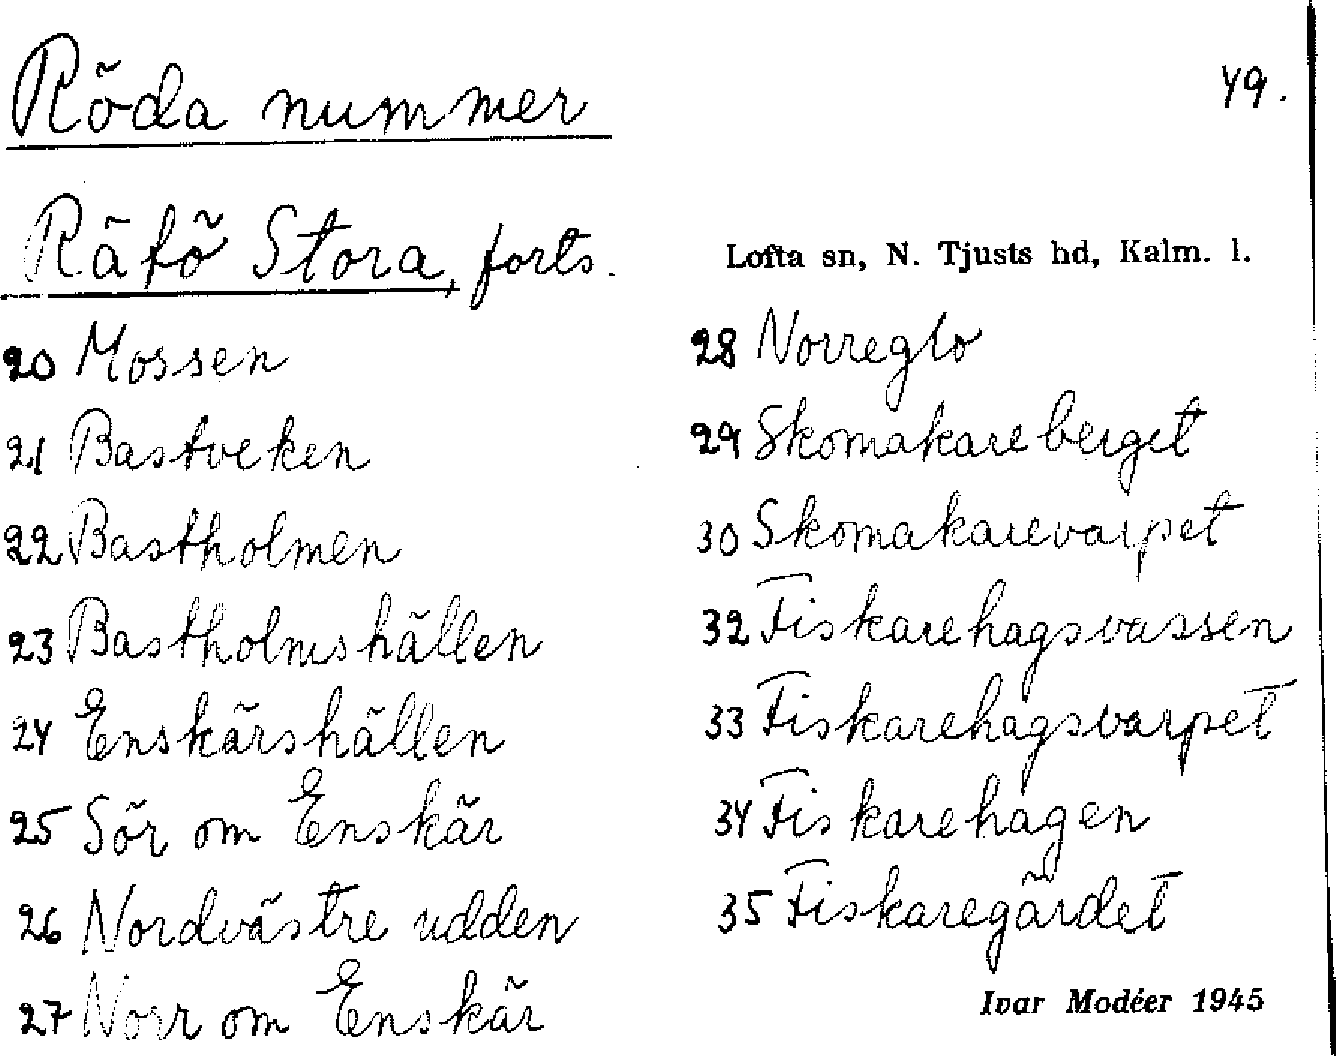 Röda nummer
49.
Räfö Stora, forts.
Lofta sn, N. Tjusts hd, Kalm. l.
20 Mossen
21 Bastveken
22 Bastholmen
23 Bastholmshällen
24 Enskärshällen
25 Sör om Enskär
26 Nordvästre udden
27 Norr om Enskär
28 Norreglo
29 Skomakareberget
30 Skomakarevarpet
32 Fiskarehagsvassen
33 Fiskarehagsvarpet
34 Fiskarehagen
35 Fiskaregärdet
Ivar Modéer 1945